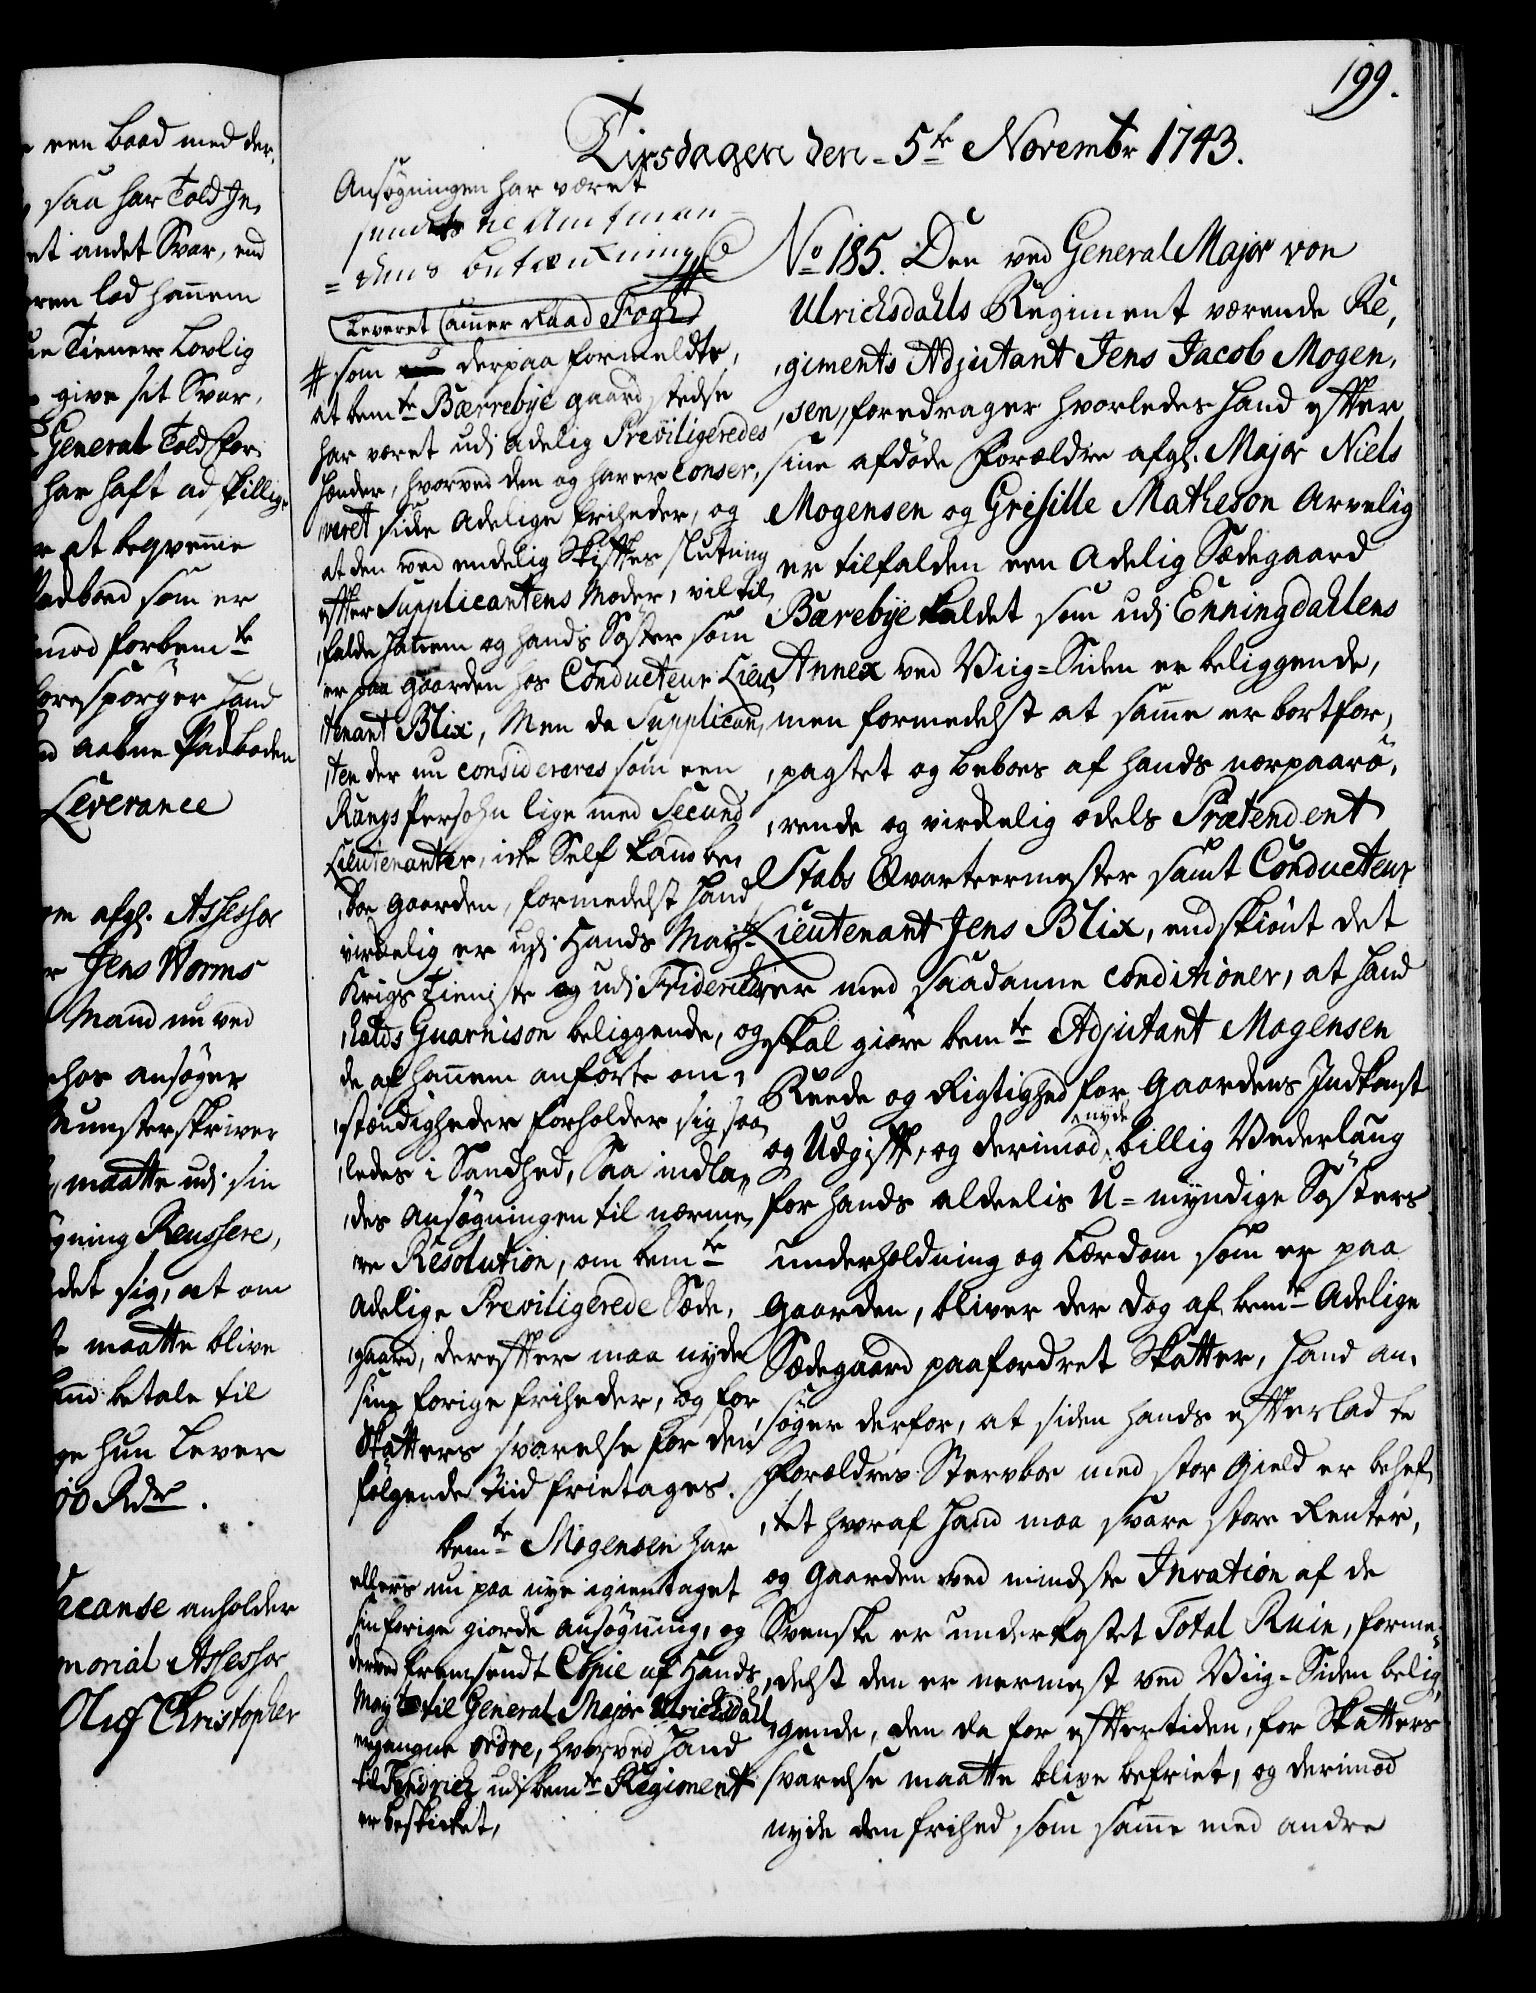 199.
Tirsdagen den 5te Novembr 1743.
een baad med der,
saa har Told In,
et andet Svar, end
eren lod hannem
Tieners Lovlig
give sit Svar,
General Toldfor,
har haft adskillige
at beqvemme
Padboed som er
imod forbemte
forespörger hand
aabne Padboden
Leverance
om afgl. Assessor
Jens Worms
Mand nu ved
ehos ansöger
Munsterskriver
maatte udj sin
gning Reussere,
det sig, at om
maatte blive
betale til
hun Lever
00 Rdr.
Vacanse anholder
morial Assessor
Oluf Christopher
Ansögningen har været
sendt til Amtman
=dens betænkning
Leveret Cammer Raad Fogh
# som derpaa formeldte,
at bemte Bærrebye gaard stedse
har været udj adelig Previligeredes
hænder, hvorved den og haver Conser,
,veret sine Adelige friheder, og
at den ved endelig Skiftes slutning
efter Supplicantens Moder, vil til,
,falde hannem og hands Söster som
er paa gaarden hos Conducteur Lieu,
,tenant Blix, Men da Supplican,
,ten der nu considereres som een
Rangs Persohn lige med Second
Lieutenanter, icke Self kand be,
,boe gaarden, formedelst hand
virkelig er udj Hands Mayts
Krigs Tieniste og udj Friderichs,
,halds Guarnison beliggende, og
de af hannem anförte om,
,stændigheder forholder sig saa,
,ledes i Sandhed, Saa indla,
,des Ansögningen til nærme,
,re Resolution, om bemte
Adelige Previligerede Sæde,
,gaard, derefter maa nyde
sine forige friheder, og for
Skatters svarelse for den
fölgende Tiid frietages.
bemte Mogensen har
ellers nu paa nye igientaget
sin forige giorde ansögning, og
derved fremsendt Copie af Hands
Mayts til General Major Ulrichsdahl
ergangne ordre, hvorved hand
til Fendrich udj bemte Regiment
er beskicket,
No 185. Den ved General Major von
Ulrichsdahls Regiment værende Re,
,giments Adjutant Jens Jacob Mogen,
,sen, foredrager hvorledes hand efter
sine afdöde Forældre afgl. Major Niels
Mogensen og Grisille Matheson Arvelig
er tilfalden een Adelig Sædegaard
Bærebye kaldet som udj Enningdahlens
Annex ved Viig=Siden er beliggende,
men formedelst at samme er bortfor,
,pagtet og beboes af hands nærpaarö,
,rende og virkelig odels Prætendent
Stabs Qvarteermester samt Conducteur
Lieutenant Jens Blix, endskiönt det
er med saadanne Conditioner, at hand
skal giöre bemte Adjutant Mogensen
Reede og Rigtighed for Gaardens Indkomst
og Udgift, og derimod nyde billig Vederlaug
for hands aldeelis U=myndige Sösters
underholdning og Lærdom som er paa
Gaarden, bliver der dog af bemte Adelige
Sædegaard paafordret Skatter, hand an,
,söger derfor, at siden hands efterladte
Forældres Stervboe med stor Gield er behef,
,tet hvoraf hand maa svare store Renter,
og Gaarden ved mindste Invation af de
Svenske er underkastet Total Ruin, forme,
,delst den er nermest ved Viig=Siden belig,
,gende, den da for eftertiden, for Skatters
svarelse maatte blive befriet, og derimod
nyde den frihed som samme med andre